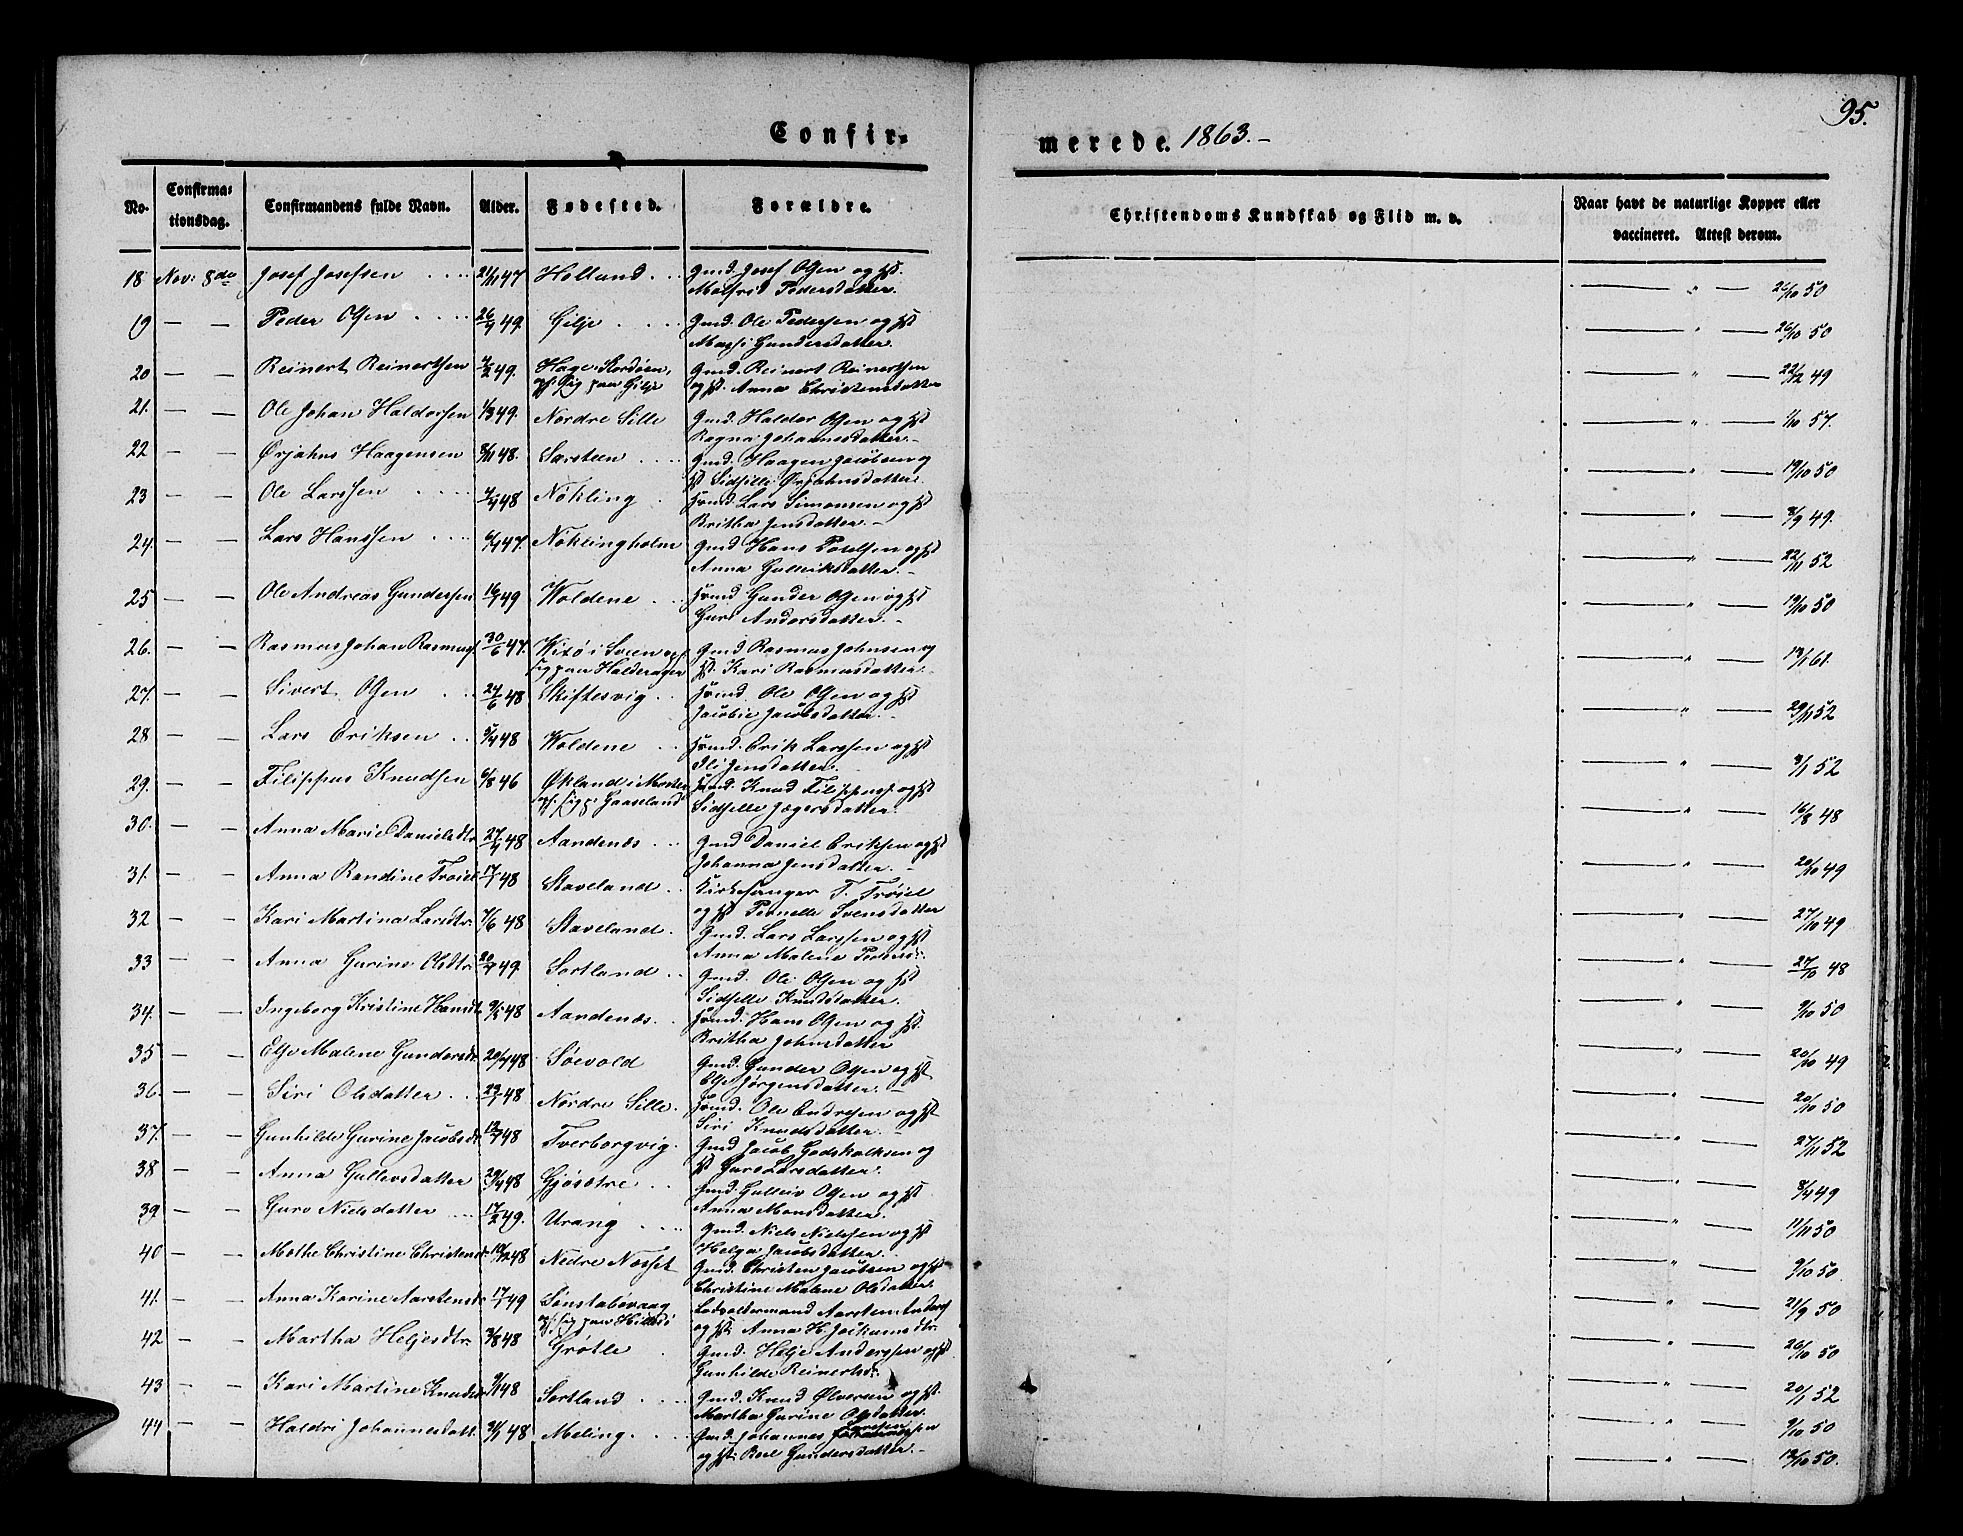 95.
Confir-
merede. 1863.-
No. Confirmationsdag. Confirmandens fulde Navn. Alder. Fødested. Forældre.
Christendoms Kundskab og Flid m. v.
Naar havt de naturlige Kopper eller vaccineret. Attest derom.
18 Nov: 8de Josef Josefsen 21/11 47 Holland Gmd. Josef Olsen og Hst. Malfrid Pedersdatter. — " — 26/10 50
19 — — Peder Olsen 26/9 49. Gilje Gmd. Ole Pedersen og Hst Magsi Gundersdatter. — " — 26/10 50
20 — — Reinert Reinertsen 4/2 49. Hage Gmd. Reinert Reinertsen og Hst. Anna Christensdatter — " — 22/12 49
21. — — Ole Johan Haldorsen 1/3 49. Nordre Sille Gmd. Haldor Olsen og Hst Ragna Johannesdatter.- — " — 1/10 57.
22 — — Ørjahns Haagensen 8/11 48. Sørsteen Gmd. Haagen Jacobsen og Hst Sidselle Ørjahnsdatter. — " — 19/10 50
23 — — Ole Larssen 4/4 48 Nøkling Huusmd. Lars Simonsen og Hst Britha Jensdatter.- — " — 8/9 49.
24. — — Lars Hanssen 6/4 47. Nøklingholm Gmd Hans Poulsen og Hst Anna Gulleiksdatter.- — " — 22/11 52
25 — — Ole Andreas Gundersen 16/1 49 Woldene Huusmd Gunder Olsen og Hst Guri Andersdatter.- — " — 19/10 50
26. — — Rasmus Johan Rasmuss. 30/6 47. Gmd Rasmus Johnsen og Hst. Kari Rasmusdatter. — " — 13/1 61.
27. — — Sivert Olsen 27/6 48 Skiftesvig Huusmd. Ole Olsen og Hst Jacobie Jacobsdatter.- — " — 29/11 52
28 — — Lars Eriksen 5/4 48 Woldene Huusmd. Erik Larssen og Hst Ili Jensdatter. — " — 3/1 52
29. — — Filippus Knudsen 6/8 46 Økland i Moster Huusmd. Knud Filippuss. og Hst Sidselle Jægersdatter. — " — 16/8 48
30. — — Anna Marie Danielsdtr 27/4 48 Aandenæs Gmd Daniel Eriksen og Hst Johanna Jensdatter.- — " — 20/10 49
31. — — Anna Randine Trøiel 17/7 48 Staveland Kirkesanger T. Trøiel og Hst Pernelle Svensdatter — " — 27/10 49
32 — — Kari Martina Larsdtr. 7/6 48 Staveland. Gmd. Lars Larssen og Hst Anna Malene — " — 27/10 48
33 — — Anna Gurine Olsdtr 20/4 49. Sortland Gmd. Ole Olsen og Hst Sidselle Knudsdatter. — " — 9/10 50
34. — — Ingeborg Kristine Hansdt. 9/5 48 Aandenæs. Huusmd. Hans Olsen og Hst. Britha Johnsdatter — " — 20/10 49
35 — — Else Malene Gundersdt. 20/4 48 Søevold Gmd. Gunder Olsen og Hst Else Jørgensdatter.- — " — 20/10 50
36. — — Siri Olsdatter 23/7 48 Nordre Sille. Huusmd. Ole Endresen og Hst. Siri Knudsdatter.- — " — 27/11 52
37. — — Gunhilde Gurine Jacobsdt. 12/7 48 Tverborgvig. Gmd Jacob Godskalksen og Hst Guro Larsdatter. — " — 8/4 49
38 — — Anna Gullevsdatter 29/4 48 Gjøsøtre Gmd. Gulleiv Olsen og Hst Anna Monsdatter. — " — 11/11 50
39 — — Guro Nielsdatter 17/2 49. Urang Gmd. Niels Nielssen og Hst Helga Jacobsdatter. — " — 9/10 50.
40 — — Mathe Christine Christensdt. 10/12 48 Nedre Nosset Gmd. Christen Jacobsen og Hst Christine Malene Olsdatter — " — 21/9 50
41. — — Anna Karine Aarstensdr 17/7 49 Sønstabøvaag Lodsoldermand Aarsten Enders. og Hst Anna H. Jockumsdtr. — " — 26/10 50
42 — — Martha Heljesdtr. 3/8 48 Grøtle Gmd. Helje Anderssen og Hst. Gunhilde Reinertsd: — " — 20/1 52
43 — — Kari Martine Knudsdr 9/1 48 Sortland Gmd. Knud Ølversen og Hst. Martha Gurine Olsdatter — " — 9/10 50
44 — — Haldri Johannesdatt. 31/1 48 Meling. Gmd. Johannes Larssen og Hst: Berl Gundersdatter.- — " — 13/10 50.